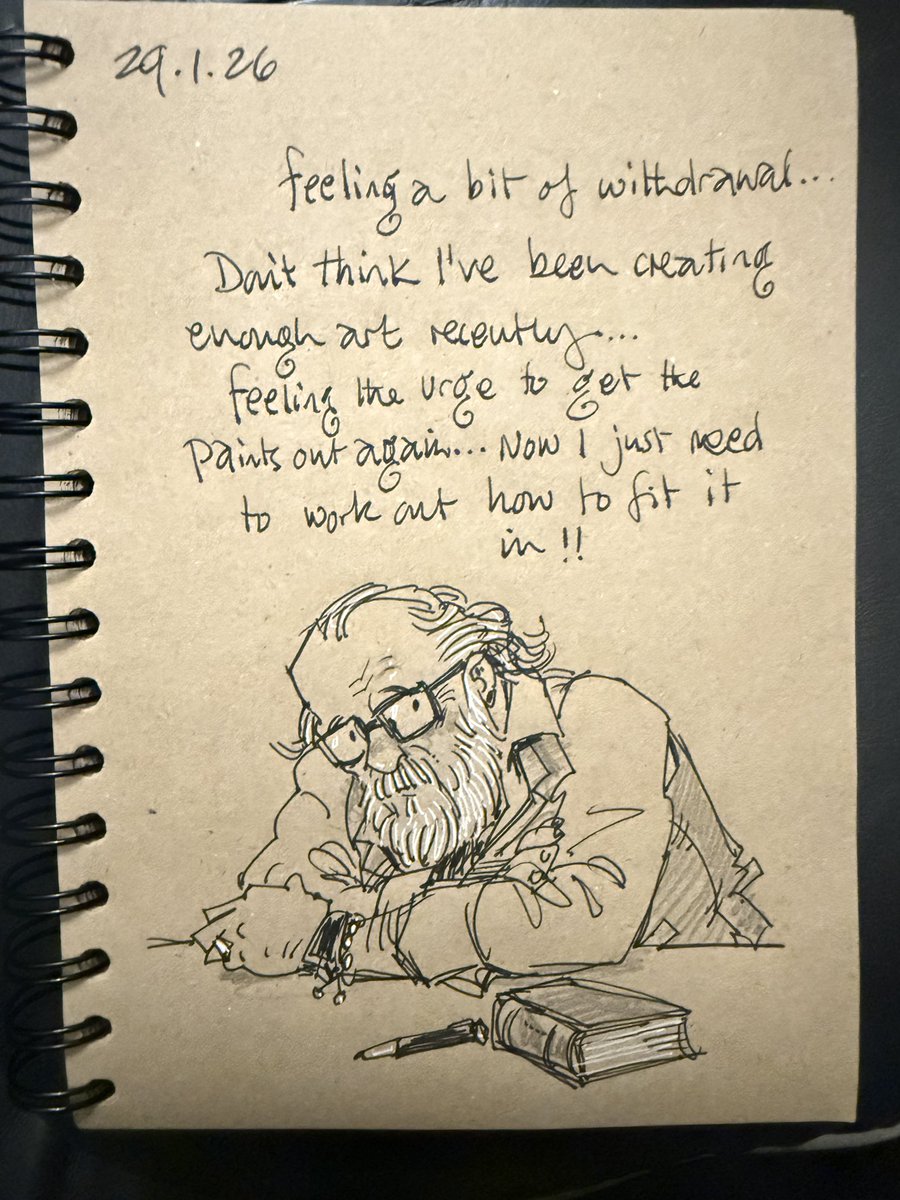 29.1.26
feeling a bit of withdrawal...
Don't think I've been creating
enough art recently....
feeling the urge to get the
paints out again... Now I just need
to work out how to fit it
in !!